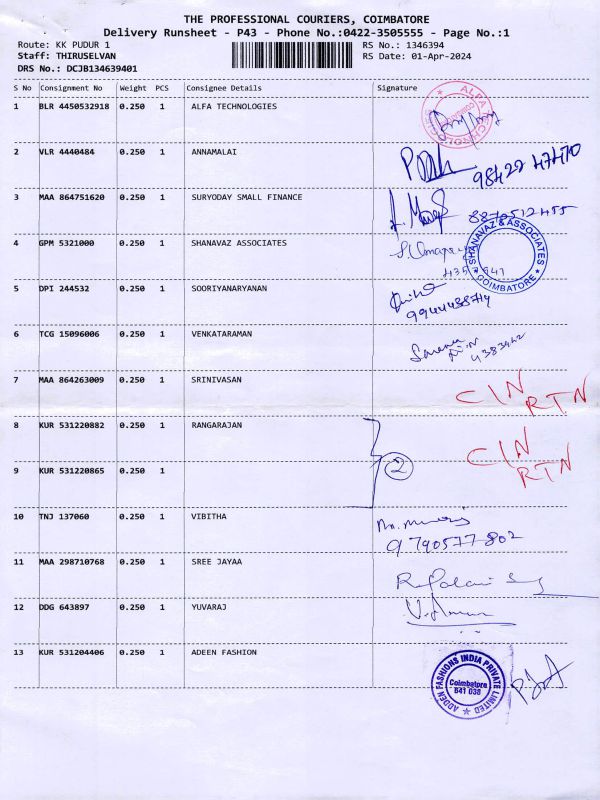 THE PROFESSIONAL COURIERS, COIMBATORE
Delivery Runsheet - P43 - Phone No.:0422-3505555 - Page No.:1
Route: KK PUDUR 1
Staff: THIRUSELVAN
DRS No.: DCJB134639401
RS No.: 1346394
RS Date: 01-Apr-2024
S No Consignment No Weight PCS Consignee Details Signature
1 BLR 4450532918 0.250 1 ALFA TECHNOLOGIES
2 VLR 4440484 0.250 1 ANNAMALAI
98422 47470
3 MAA 864751620 0.250 1 SURYODAY SMALL FINANCE
4 GPM 5321000 0.250 1 SHANAVAZ ASSOCIATES
SHANAVAZ & ASSOCIATES
COIMBATORE
5 DPI 244532 0.250 1 SOORIYANARYANAN
6 TCG 15096006 0.250 1 VENKATARAMAN
7 MAA 864263009 0.250 1 SRINIVASAN
CIN
RTN
8 KUR 531220882 0.250 1 RANGARAJAN
CIN
RTN
9 KUR 531220865 0.250 1
2
10 TNJ 137060 0.250 1 VIBITHA
9790577802
11 MAA 298710768 0.250 1 SREE JAYAA
12 DDG 643897 0.250 1 YUVARAJ
13 KUR 531204406 0.250 1 ADEEN FASHION
ADDEN FASHIONS INDIA PRIVATE LIMITED
Coimbatore
641 038